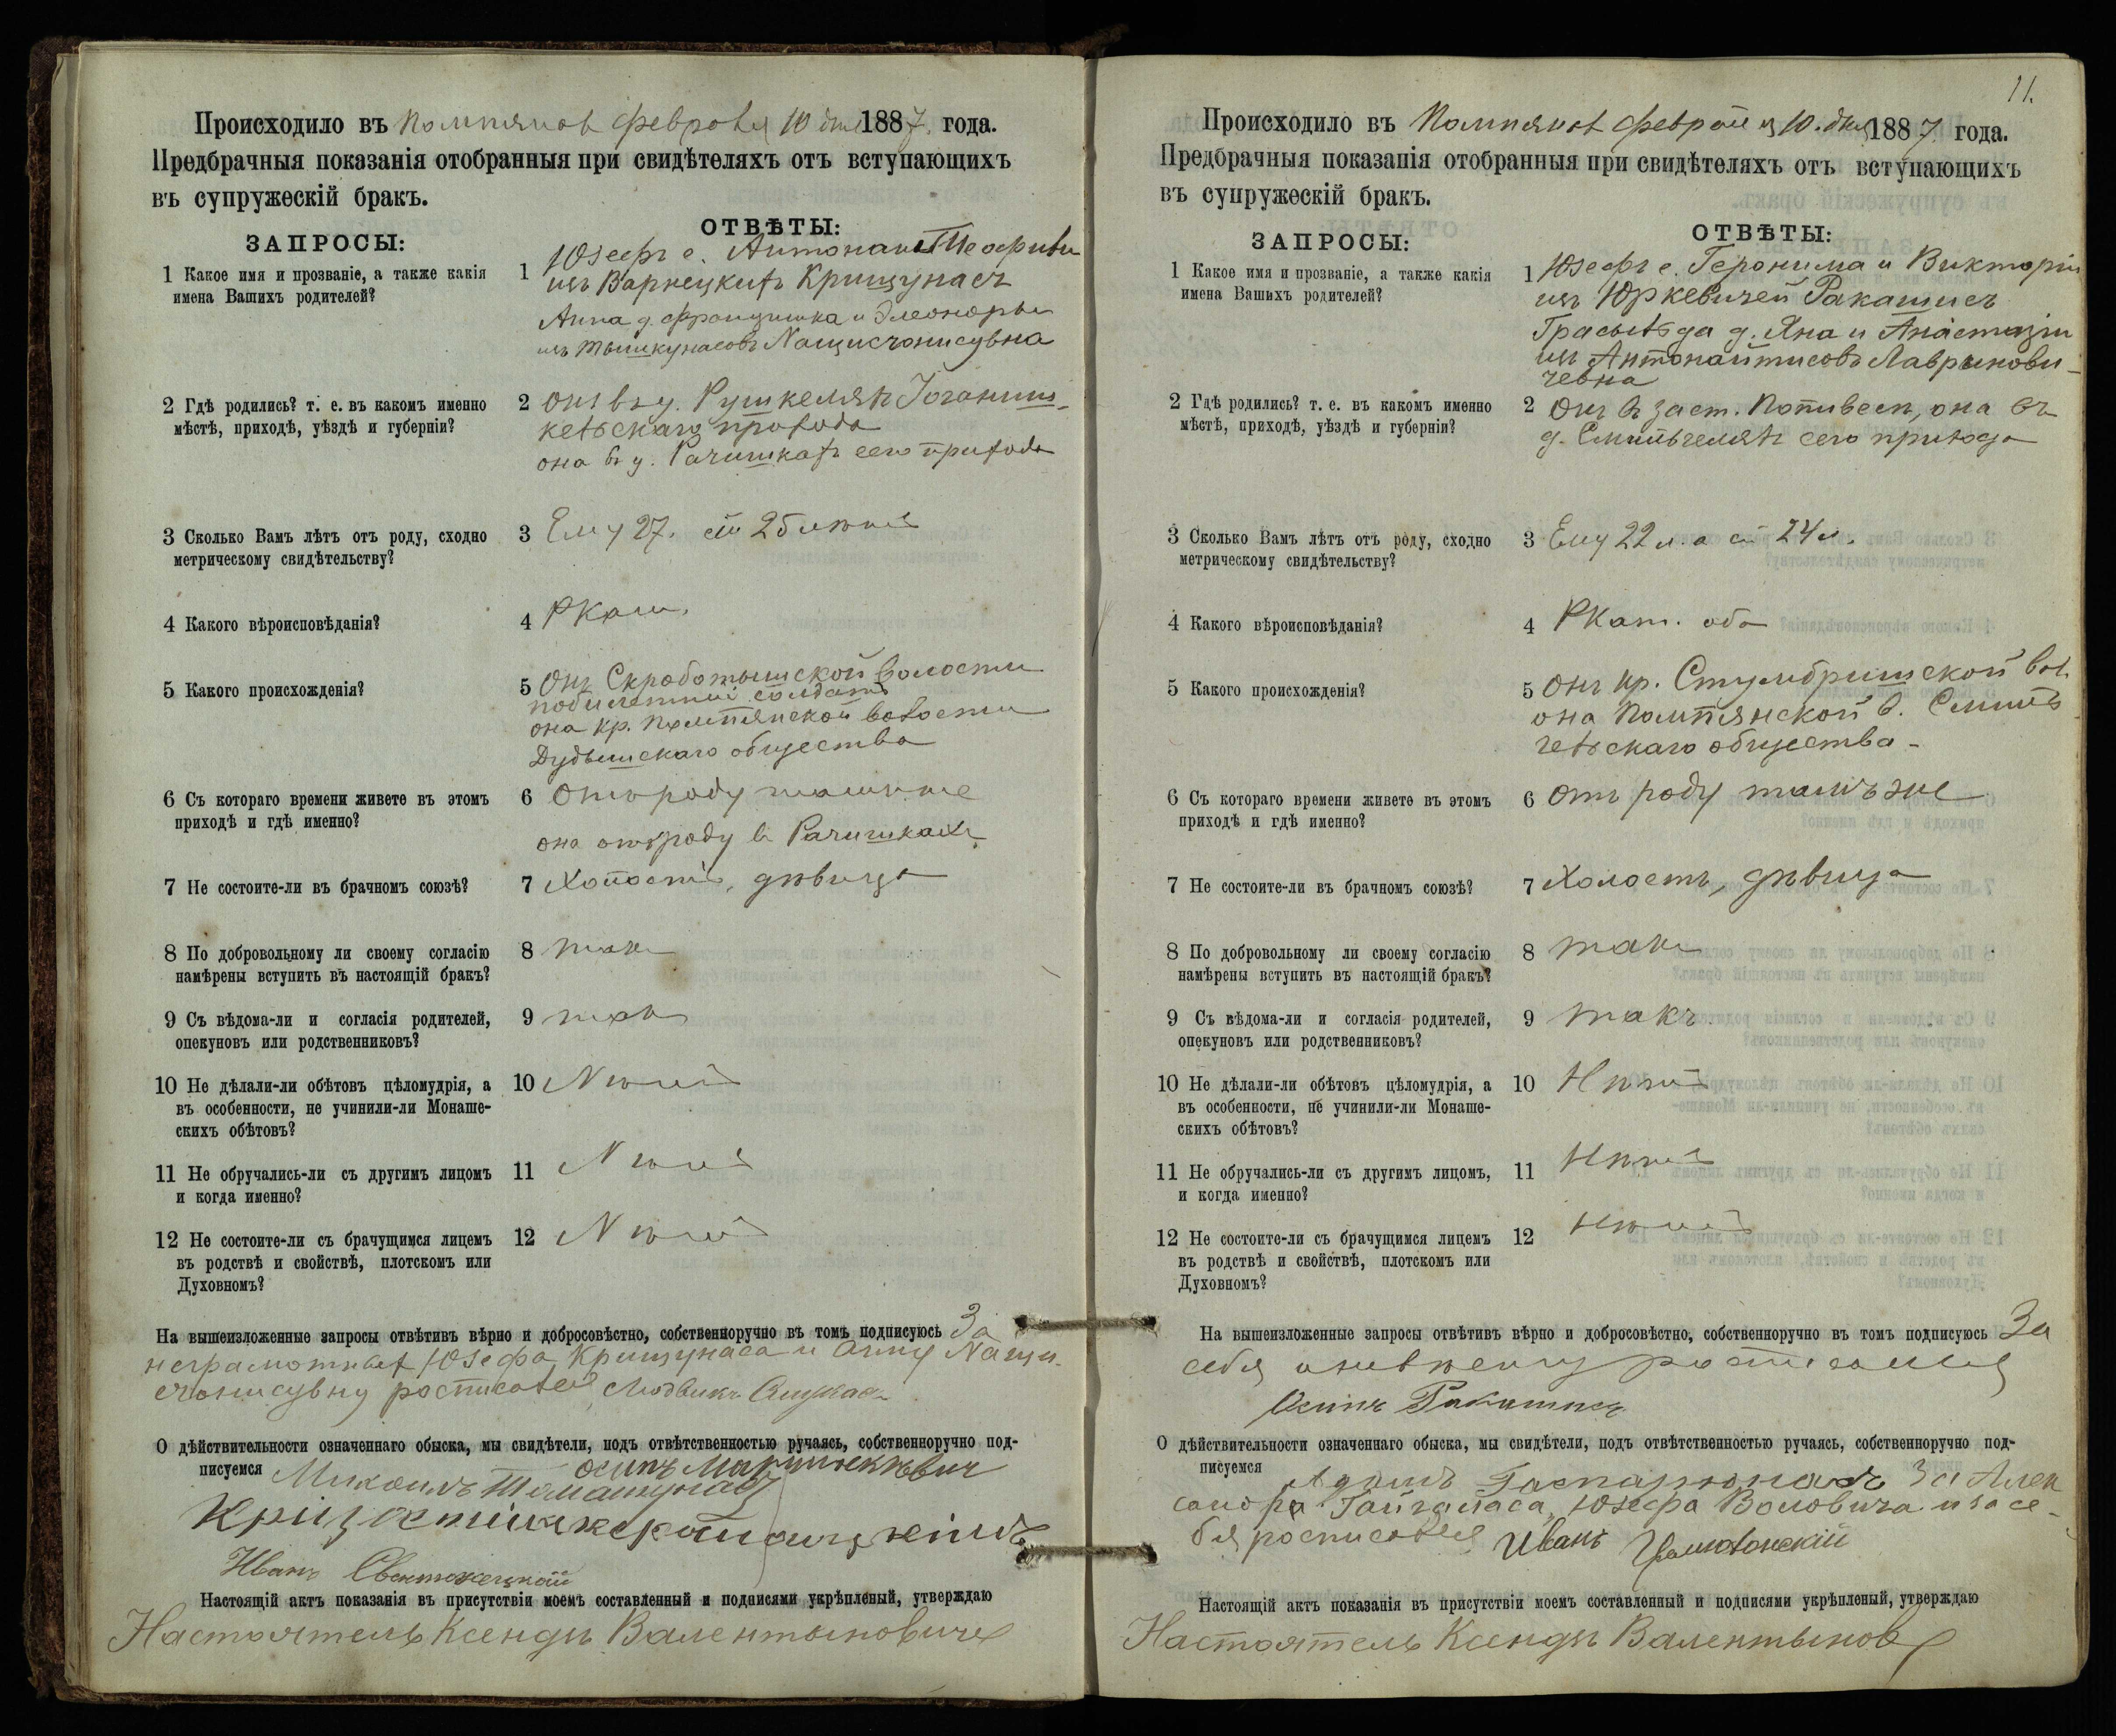 Происходило въ Помпянах февраля 10 дня 1887 года.
Предбрачныя показанія отобранныя при свидѣтеляхъ отъ вступающихъ
въ супружескій бракъ.
ЗАПРОСЫ:
ОТВѢТЫ:
1 Какое имя и прозваніе, а также какія
имена Вашихъ родителей?
1 Юзефъ с. Антона и Теофили
изъ Варнецкихъ Крищунасъ
Анна д. Францишка и Элеоноры
изъ Мышкунасовъ
2 Гдѣ родились? т. е. въ какомъ именно
мѣстѣ, приходѣ, уѣздѣ и губерніи?
2 Онъ въ д. Рушкеляхъ Іоганиш-
кельскаго прихода
она въ д. Рачишкахъ сего прихода
3 Сколько Вамъ лѣтъ отъ роду, сходно
метрическому свидѣтельству?
3 Ему 27. ей 25 лѣтъ
4 Какого вѣроисповѣданія?
4 РКат.
5 Какого происхожденія?
5 Онъ Скработышской волости
побилетный солдатъ
она кр. Помпянской волости
Дудышскаго общества
6 Съ котораго времени живете въ этомъ
приходѣ и гдѣ именно?
6 Отъ роду тамъ же
она отъ роду в Рачишкахъ
7 Не состоите-ли въ брачномъ союзѣ?
7 Холостъ, дѣвица
8 По добровольному ли своему согласію
намѣрены вступить въ настоящій бракъ?
8 такъ
9 Съ вѣдома-ли и согласія родителей,
опекуновъ или родственниковъ?
9 такъ
10 Не дѣлали-ли обѣтовъ цѣломудрія, а
въ особенности, не учинили-ли Монаше-
скихъ обѣтовъ?
10 Nѣтъ
11 Не обручались-ли съ другимъ лицомъ
и когда именно?
11 Nѣтъ
12 Не состоите-ли съ брачущимся лицемъ
въ родствѣ и свойствѣ, плотскомъ или
Духовномъ?
12 Nѣтъ
На вышеизложенные запросы отвѣтивъ вѣрно и добросовѣстно, собственноручно въ томъ подписуюсь За
неграмотных Юзефа Крищунаса и Анну
росписался Людвикъ
О дѣйствительности означеннаго обыска, мы свидѣтели, подъ отвѣтственностью ручаясь, собственноручно под-
писуемся Михаилъ Томашунас Осипъ
Иванъ
Настоящій актъ показанія въ присутствіи моемъ составленный и подписями укрѣпленый, утверждаю
Настоятель Ксендзъ Валентыновичъ
11.
Происходило въ Помпянах февраля 10. дня 1887 года.
Предбрачныя показанія отобранныя при свидѣтеляхъ отъ вступающихъ
въ супружескій бракъ.
ЗАПРОСЫ:
ОТВѢТЫ:
1 Какое имя и прозваніе, а также какія
имена Вашихъ родителей?
1 Юзефъ с. Геронима и Викторіи
изъ Юркевичей Ракашисъ
д. Яна и Анастазіи
изъ Антонайтисовъ Лаврынови-
чевна
2 Гдѣ родились? т. е. въ какомъ именно
мѣстѣ, приходѣ, уѣздѣ и губерніи?
2 Онъ въ заст. она въ
д. Смильгеляхъ сего прихода
3 Сколько Вамъ лѣтъ отъ роду, сходно
метрическому свидѣтельству?
3 Ему 22 л. а ей 24 л.
4 Какого вѣроисповѣданія?
4 РКат. оба
5 Какого происхожденія?
5 Онъ кр. Стумбришской вол.
она Помпянской в. Смиль-
гельскаго общества -
6 Съ котораго времени живете въ этомъ
приходѣ и гдѣ именно?
6 Отъ роду тамъ же
7 Не состоите-ли въ брачномъ союзѣ?
7 Холостъ, дѣвица
8 По добровольному ли своему согласію
намѣрены вступить въ настоящій бракъ?
8 такъ
9 Съ вѣдома-ли и согласія родителей,
опекуновъ или родственниковъ?
9 такъ
10 Не дѣлали-ли обѣтовъ цѣломудрія, а
въ особенности, не учинили-ли Монаше-
скихъ обѣтовъ?
10 Нѣтъ
11 Не обручались-ли съ другимъ лицомъ,
и когда именно?
11 Нѣтъ
12 Не состоите-ли съ брачущимся лицемъ
въ родствѣ и свойствѣ, плотскомъ или
Духовномъ?
12 Нѣтъ
На вышеизложенные запросы отвѣтивъ вѣрно и добросовѣстно, собственноручно въ томъ подписуюсь За
себя и невѣсту росписался
Осипъ Ракашисъ
О дѣйствительности означеннаго обыска, мы свидѣтели, подъ отвѣтственностью ручаясь, собственноручно под-
писуемся Адамъ Гаспарюнасъ За Алек
сандра Гайгаласа, Юзефа Воловича и за се-
бя росписался Иванъ
Настоящій актъ показанія въ присутствіи моемъ составленный и подписями укрѣпленый, утверждаю
Настоятель Ксендзъ Валентынов